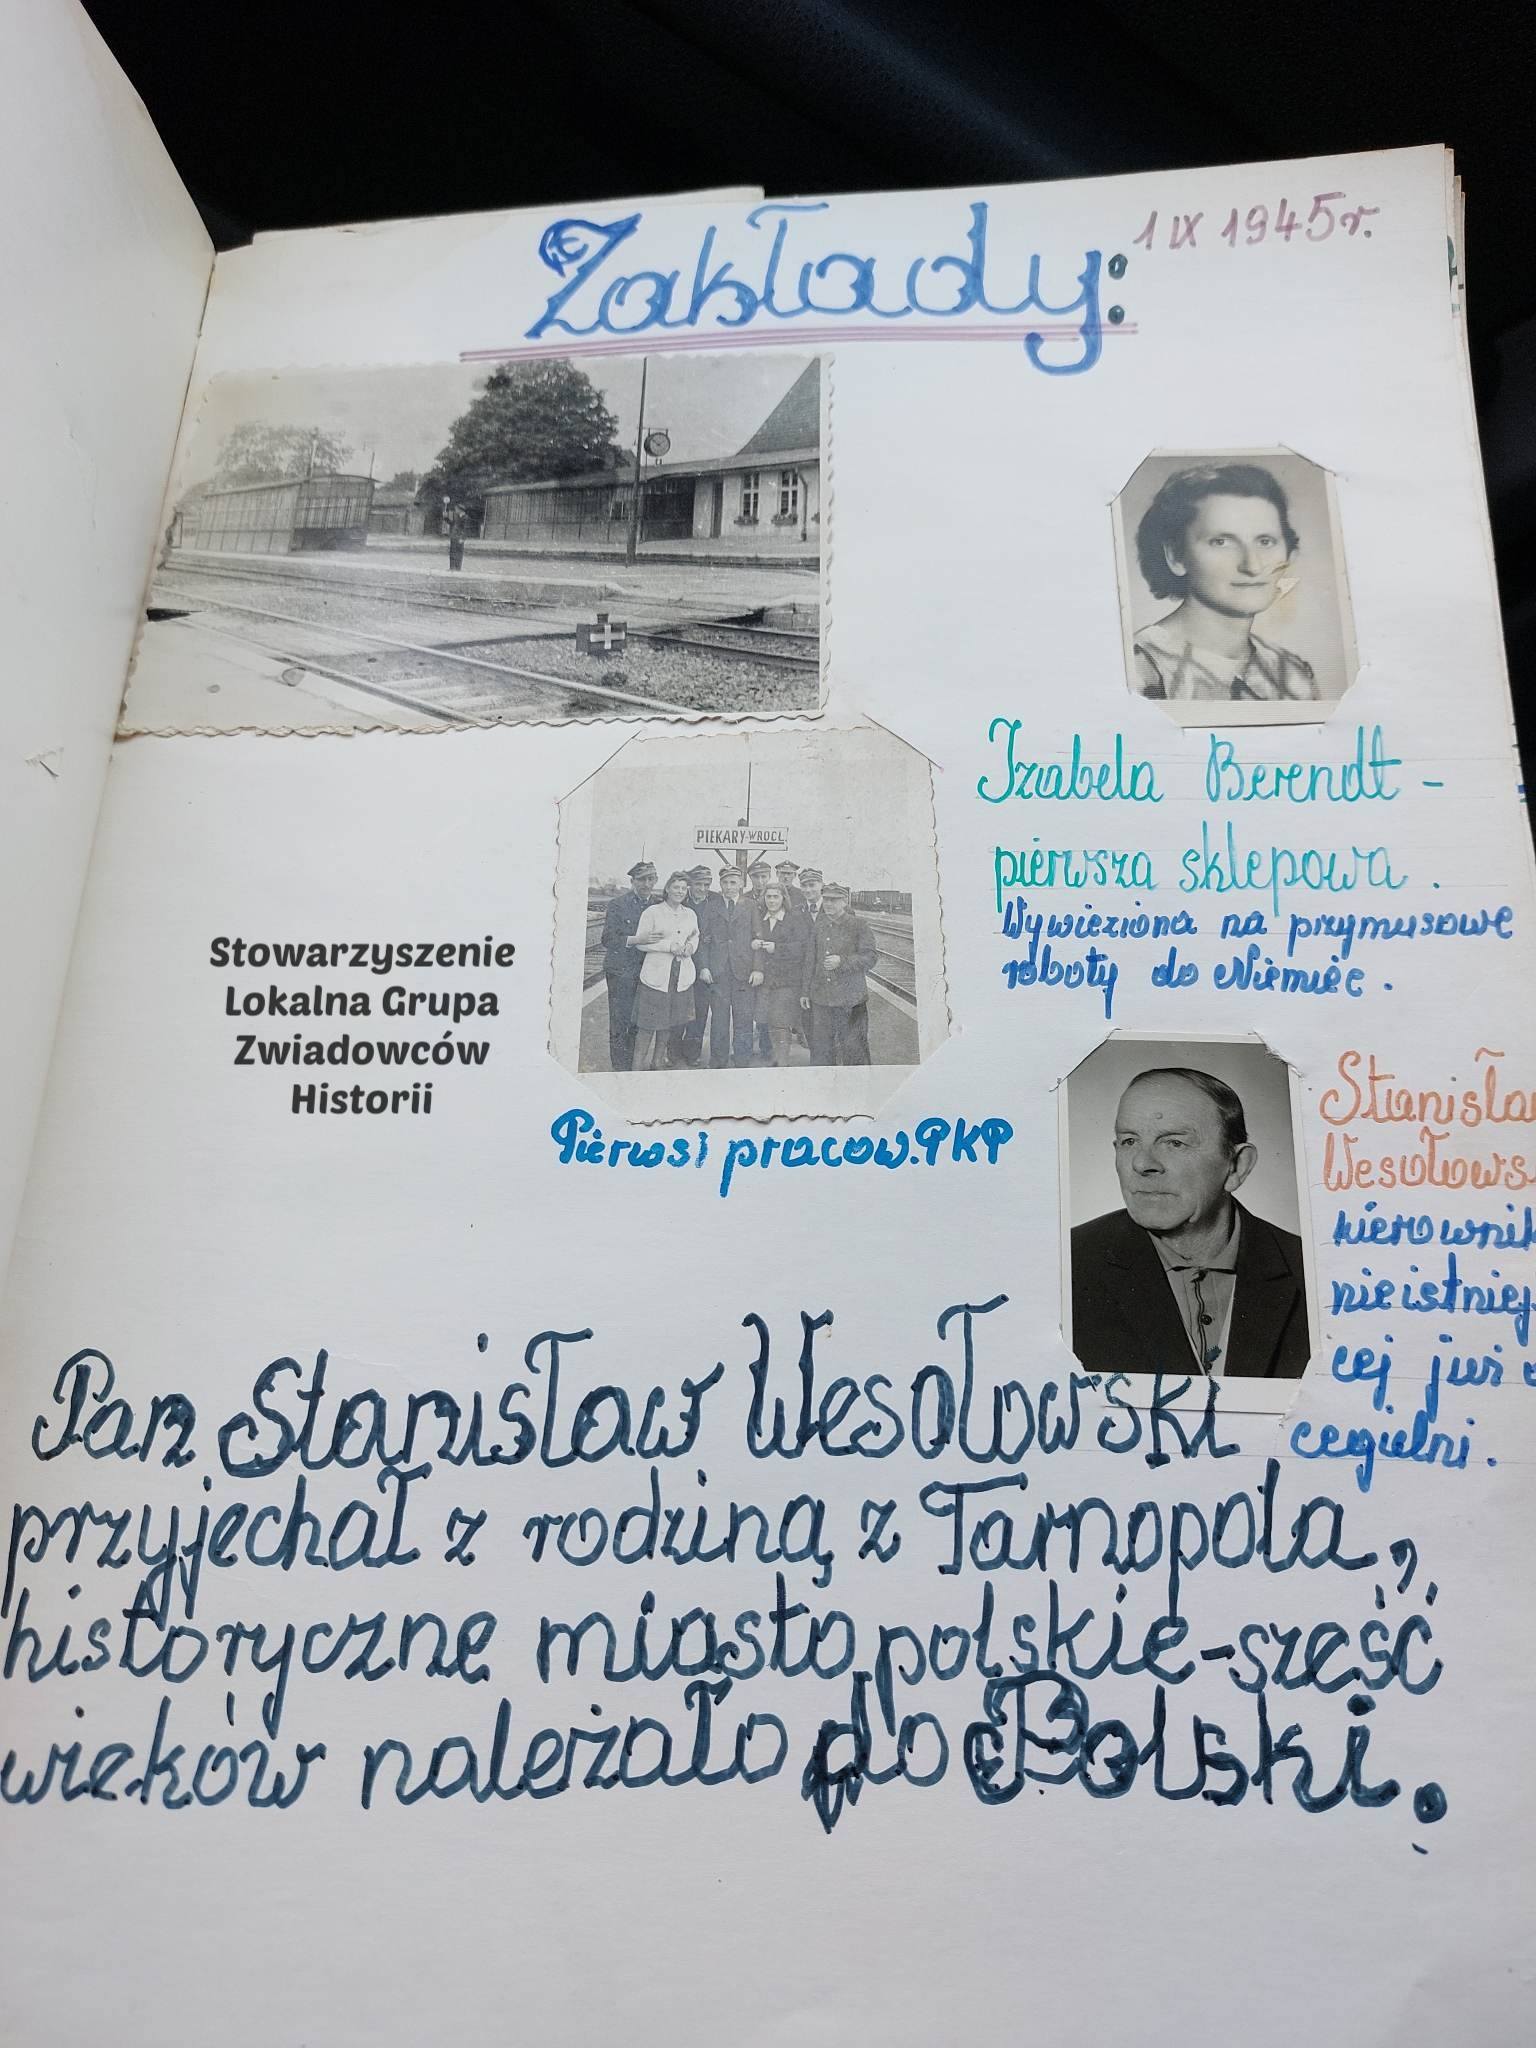 Zakłady:
1 IX 1945r.
PIEKARY-WROCŁ.
Pierwsi pracow. PKP
Izabela Berendt -
pierwsza sklepowa.
Wywieziona na przymusowe
roboty do Niemiec.
Stowarzyszenie
Lokalna Grupa
Zwiadowców
Historii
Stanisła
Wesołows
kierownik
nieistnieją
cej już
cegielni.
Pan Stanisław Wesołowski
przyjechał z rodziną z Tarnopola,
historyczne miasto polskie-sześć
wieków należało do Polski.